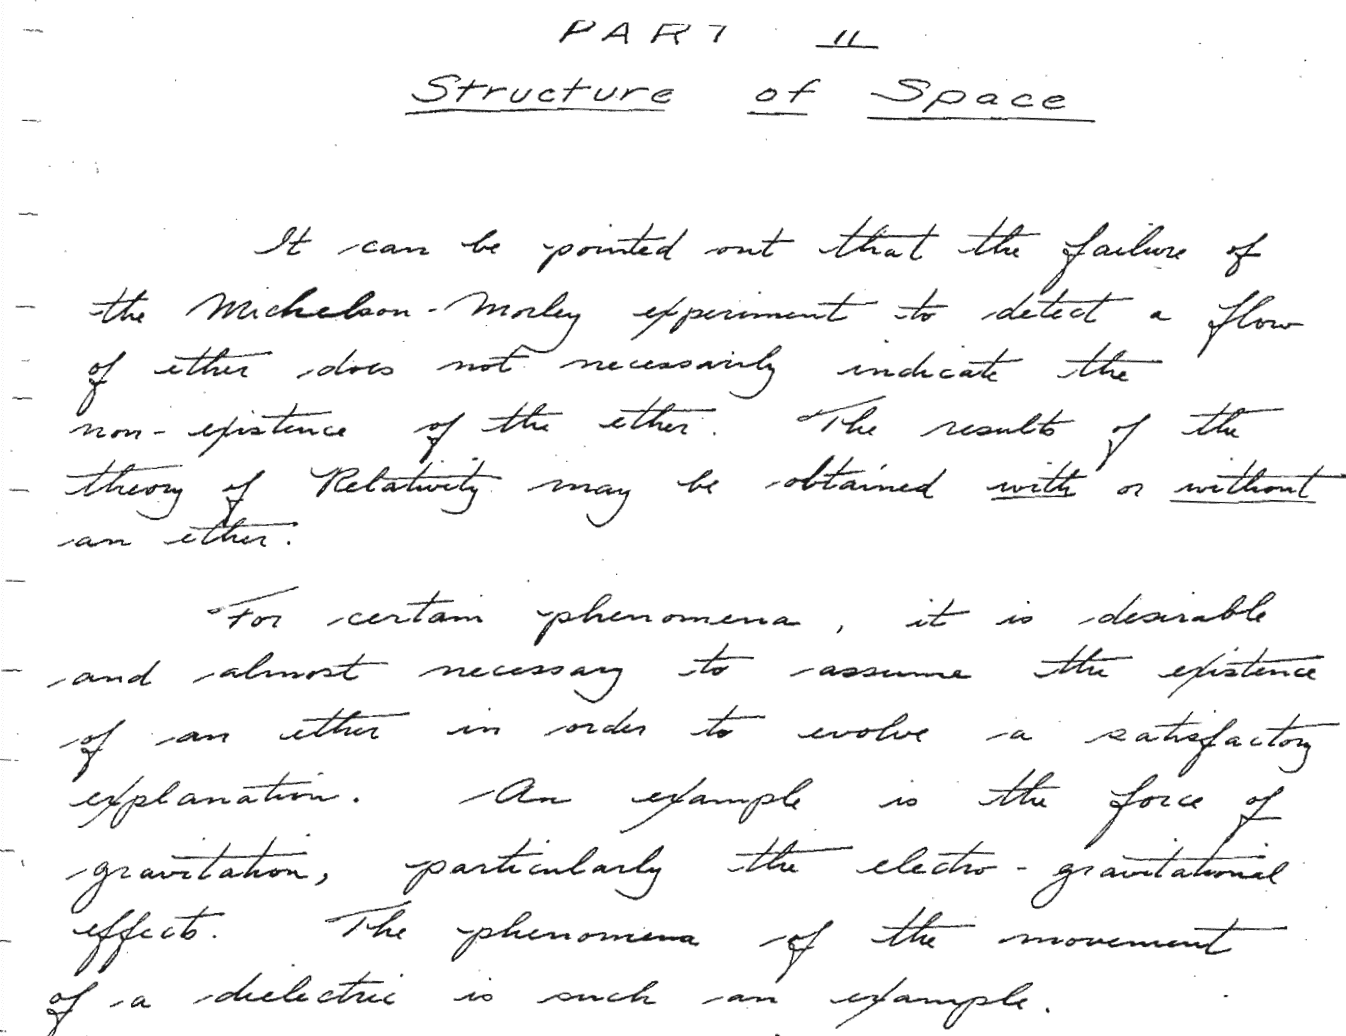 PART II
Structure of Space
It can be pointed out that the failure of
the Michelson-Morley experiment to detect a flow
of ether does not necessarily indicate the
non-existence of the ether. The results of the
theory of Relativity may be obtained with or without
an ether.
For certain phenomena, it is desirable
and almost necessary to assume the existence
of an ether in order to evolve a satisfactory
explanation. An example is the force of
gravitation, particularly the electro-gravitational
effects. The phenomena of the movement
of a dielectric is such an example.